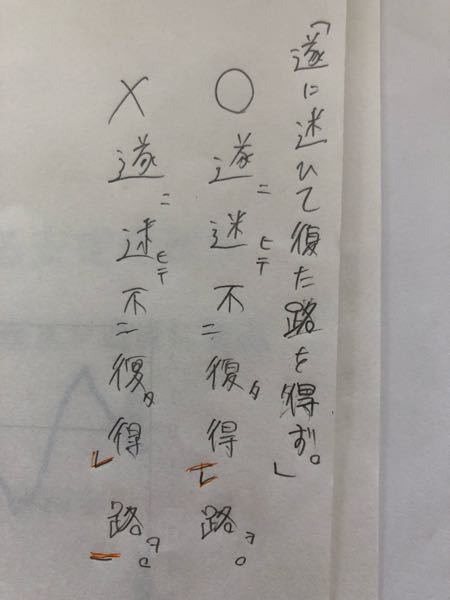 「遂に迷ひて復た路を得ず。」
○ 遂ニ迷ヒテ不二復タ得一レ路ヲ。
× 遂ニ迷ヒテ不二復タ得レ路ヲ一。